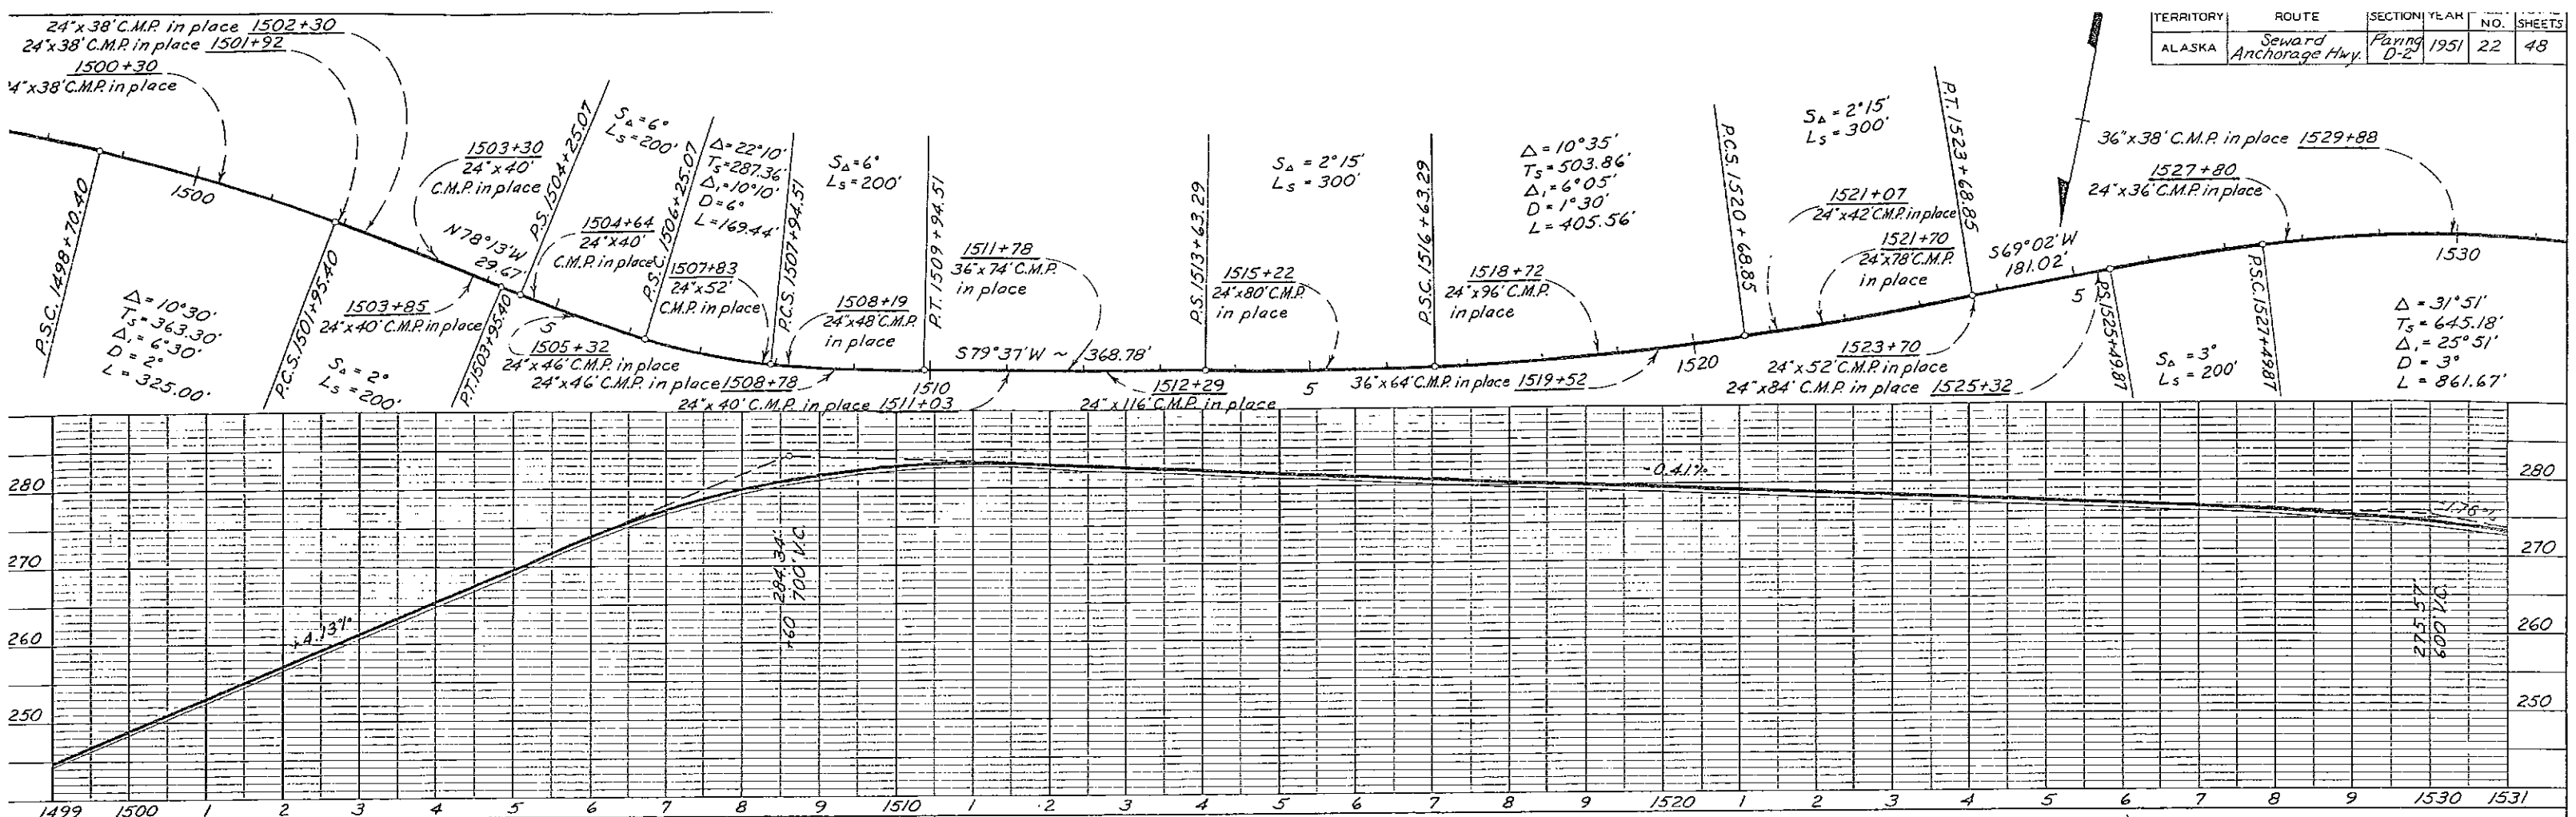 TERRITORY ROUTE SECTION YEAR NO. SHEETS
ALASKA Seward Anchorage Hwy. Paving D-2 1951 22 48
24"x38' C.M.P. in place 1502+30
24"x38' C.M.P. in place 1501+92
1500+30
24"x38' C.M.P. in place
P.S.C. 1498+70.40
1500
Δ = 10°30'
Ts = 363.30'
Δ₁ = 6°30'
D = 2°
L = 325.00'
P.C.S. 1501+95.40
SΔ = 2°
Ls = 200'
1503+30
24"x40'
C.M.P. in place
N78°13'W
29.67'
1503+85
24"x40' C.M.P. in place
P.T. 1503+95.40
P.S. 1504+25.07
SΔ = 6°
Ls = 200'
1504+64
24"x40'
C.M.P. in place
5
1505+32
24"x46' C.M.P. in place
P.S.C. 1506+25.07
Δ = 22°10'
Ts = 287.36'
Δ₁ = 10°10'
D = 6°
L = 169.44'
1507+83
24"x52'
C.M.P. in place
P.C.S. 1507+94.51
SΔ = 6°
Ls = 200'
1508+19
24"x48' C.M.P.
in place
24"x46' C.M.P. in place 1508+78
P.T. 1509+94.51
1510
24"x40' C.M.P. in place 1511+03
1511+78
36"x74' C.M.P.
in place
S79°37'W ~ 368.78'
1512+29
24"x116' C.M.P. in place
P.S. 1513+63.29
SΔ = 2°15'
Ls = 300'
1515+22
24"x80' C.M.P.
in place
5
P.S.C. 1516+63.29
Δ = 10°35'
Ts = 503.86'
Δ₁ = 6°05'
D = 1°30'
L = 405.56'
1518+72
24"x96' C.M.P.
in place
36"x64' C.M.P. in place 1519+52
1520
P.C.S. 1520+68.85
SΔ = 2°15'
Ls = 300'
1521+07
24"x42' C.M.P. in place
1521+70
24"x78' C.M.P.
in place
P.T. 1523+68.85
1523+70
24"x52' C.M.P. in place
24"x84' C.M.P. in place 1525+32
S69°02'W
181.02'
5
P.S. 1525+49.87
SΔ = 3°
Ls = 200'
P.S.C. 1527+49.87
36"x38' C.M.P. in place 1529+88
1527+80
24"x36' C.M.P. in place
1530
Δ = 31°51'
Ts = 645.18'
Δ₁ = 25°51'
D = 3°
L = 861.67'
280 280
270 270
260 260
250 250
+4.13%
+60 284.34
700' V.C.
-0.41%
-1.76%
275.57
600' V.C.
1499 1500 1 2 3 4 5 6 7 8 9 1510 1 2 3 4 5 6 7 8 9 1520 1 2 3 4 5 6 7 8 9 1530 1531